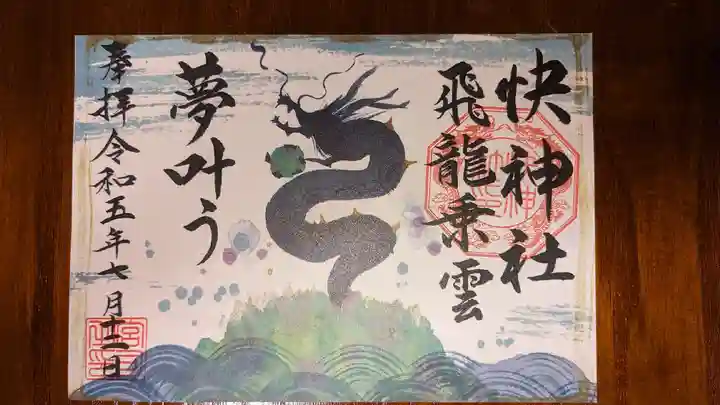 快神社
飛龍乗雲
夢叶う
奉拝令和五年七月十二日